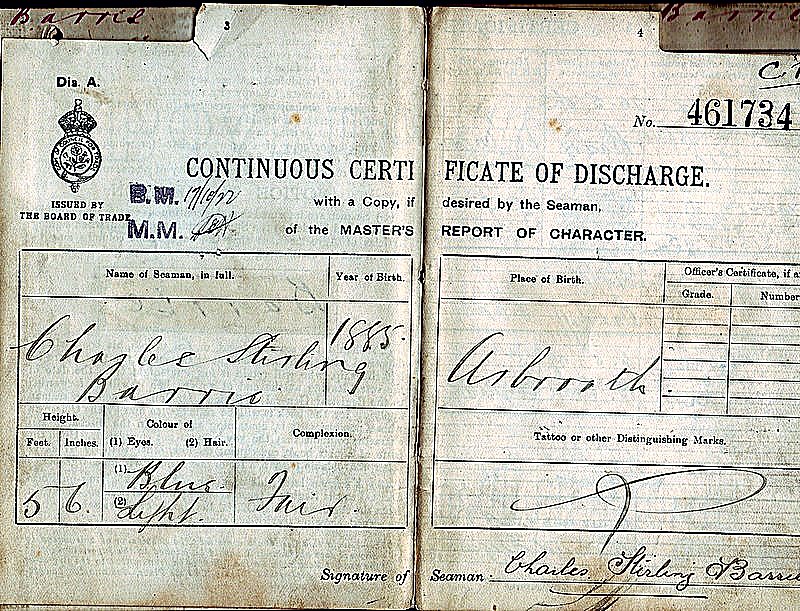 Barrie
Barrie
3
4
Dis. A.
No. 461734
CONTINUOUS CERTIFICATE OF DISCHARGE.
ISSUED BY
THE BOARD OF TRADE
B.M. 17/10/22
M.M.
with a Copy, if desired by the Seaman,
of the MASTER'S REPORT OF CHARACTER.
Name of Seaman, in full.
Year of Birth.
Place of Birth.
Officer's Certificate, if
Grade.
Number
Charles Stirling
Barrie
1885.
Arbroath.
Height.
Feet.
Inches.
Colour of
(1) Eyes. (2) Hair.
Complexion.
Tattoo or other Distinguishing Marks.
5
6.
(1) Blue.
(2) Light.
Fair.
Signature of Seaman Charles Stirling Barrie